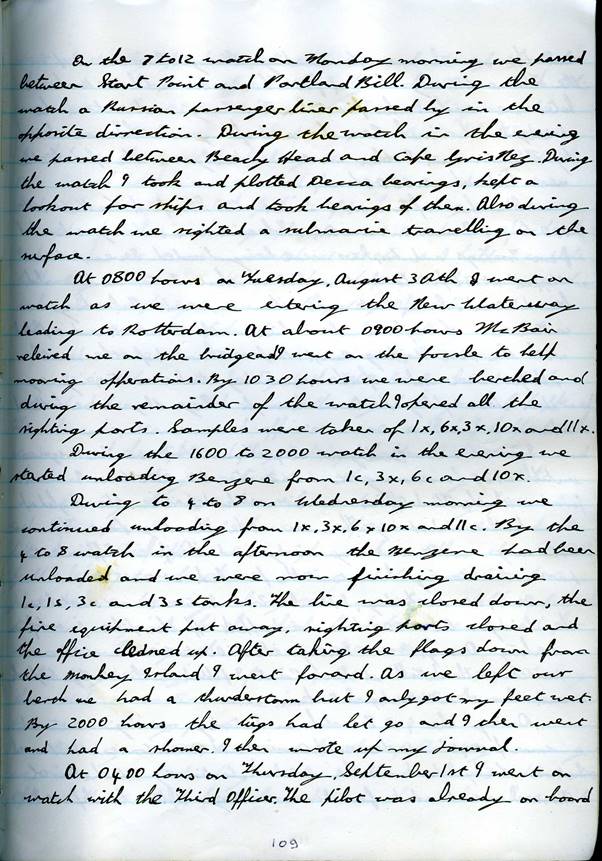 On the 8 to 12 watch on Monday morning we passed
between Start Point and Portland Bill. During the
watch a Russian passenger liner passed by in the
opposite dirrection. During the watch in the evening
we passed between Beachy Head and Cape Gris Nez. During
the watch I took and plotted Decca bearings, kept a
lookout for ships and took bearings of them. Also during
the watch we sighted a submarie travelling on the
surface.
At 0800 hours on Tuesday, August 30th I went on
watch as we were entering the New Waterway
leading to Rotterdam. At about 0900 hours McBain
releived me on the bridge and I went on the focsle to help
mooring opperations. By 1030 hours we were berthed and
during the remainder of the watch I opened all the
sighting ports. Samples were taken of 1x, 6x, 3x, 10x and 11x.
During the 1600 to 2000 watch in the evening we
started unloading Benzene from 1c, 3x, 6c and 10x.
During to 4 to 8 on Wednesday morning we
continued unloading from 1x, 3x, 6x 10x and 11c. By the
4 to 8 watch in the afternoon the Benzene had been
unloaded and we were now finishing draining
1c, 1s, 3c and 3s tanks. The line was closed down, the
fire equipment put away, sighting ports closed and
the office closed up. After taking the flags down from
the Monkey Island I went forard. As we left our
berth we had a thunderstorm but I only got my feet wet.
By 2000 hours the tugs had let go and I then went
and had a shower. I then wrote up my journal.
At 0400 hours on Thursday, September 1st I went on
watch with the Third Officer. The pilot was already on board
109